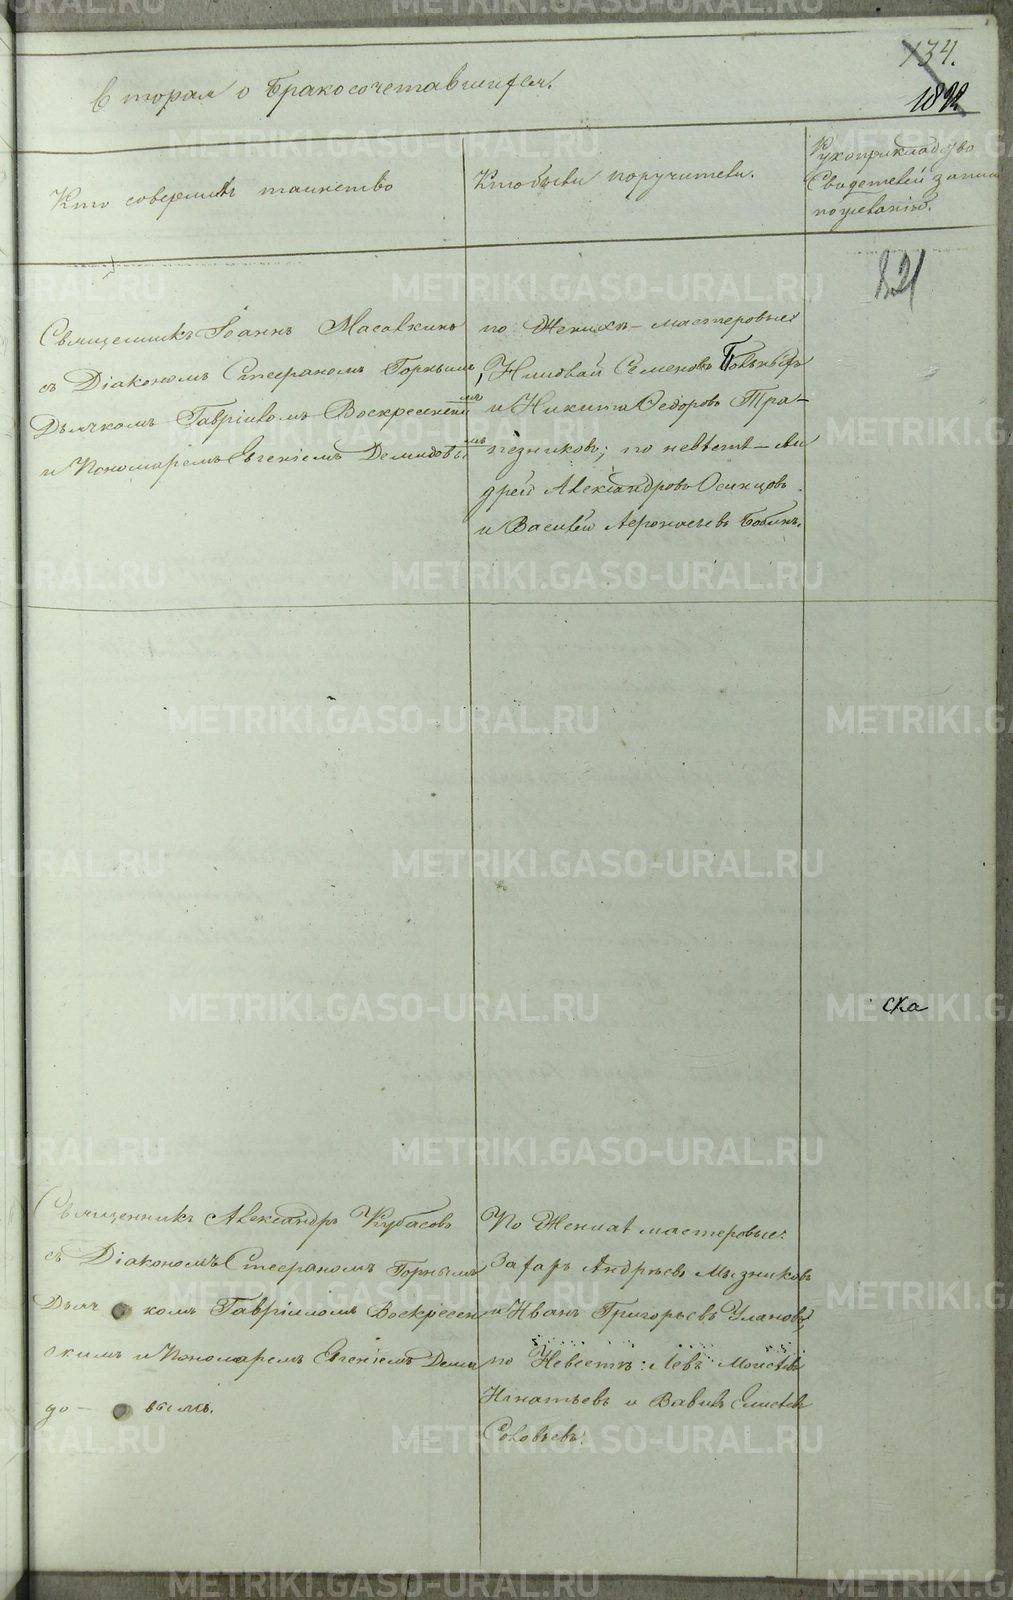 134.
вторая о бракосочетавшихся.
Кто совершилъ таинство
Кто были поручители.
Рукоприкладство
Свидетелей записи
по желанію.
821
Священникъ Іоаннъ
съ Діакономъ Стефаномъ Горнымъ,
Дьячкомъ Гавріиломъ Воскресенскимъ
и Пономаремъ Евгеніемъ Демидовымъ
по Женихѣ – мастеровые:
Николай Семеновъ
и Никита Ѳедоровъ Тра-
пезниковъ; по невѣстѣ – Ан
дрей Александровъ Осинцовъ
и Василій Афонасьевъ
ска
Священникъ Александръ Кубасовъ
съ Діакономъ Стефаномъ Горнымъ
Дьяч комъ Гавріиломъ Воскресен
скимъ и Пономаремъ Евгеніемъ Деми
до – вымъ.
По Женихѣ мастеровые:
Захаръ Андреевъ Мызниковъ
и Иванъ Григорьевъ Улановъ,
по Невѣстѣ: Левъ Моисѣевъ
Игнатьевъ и Вавилъ Елисѣевъ
Соловьевъ.
METRIKI.GASO-URAL.RU